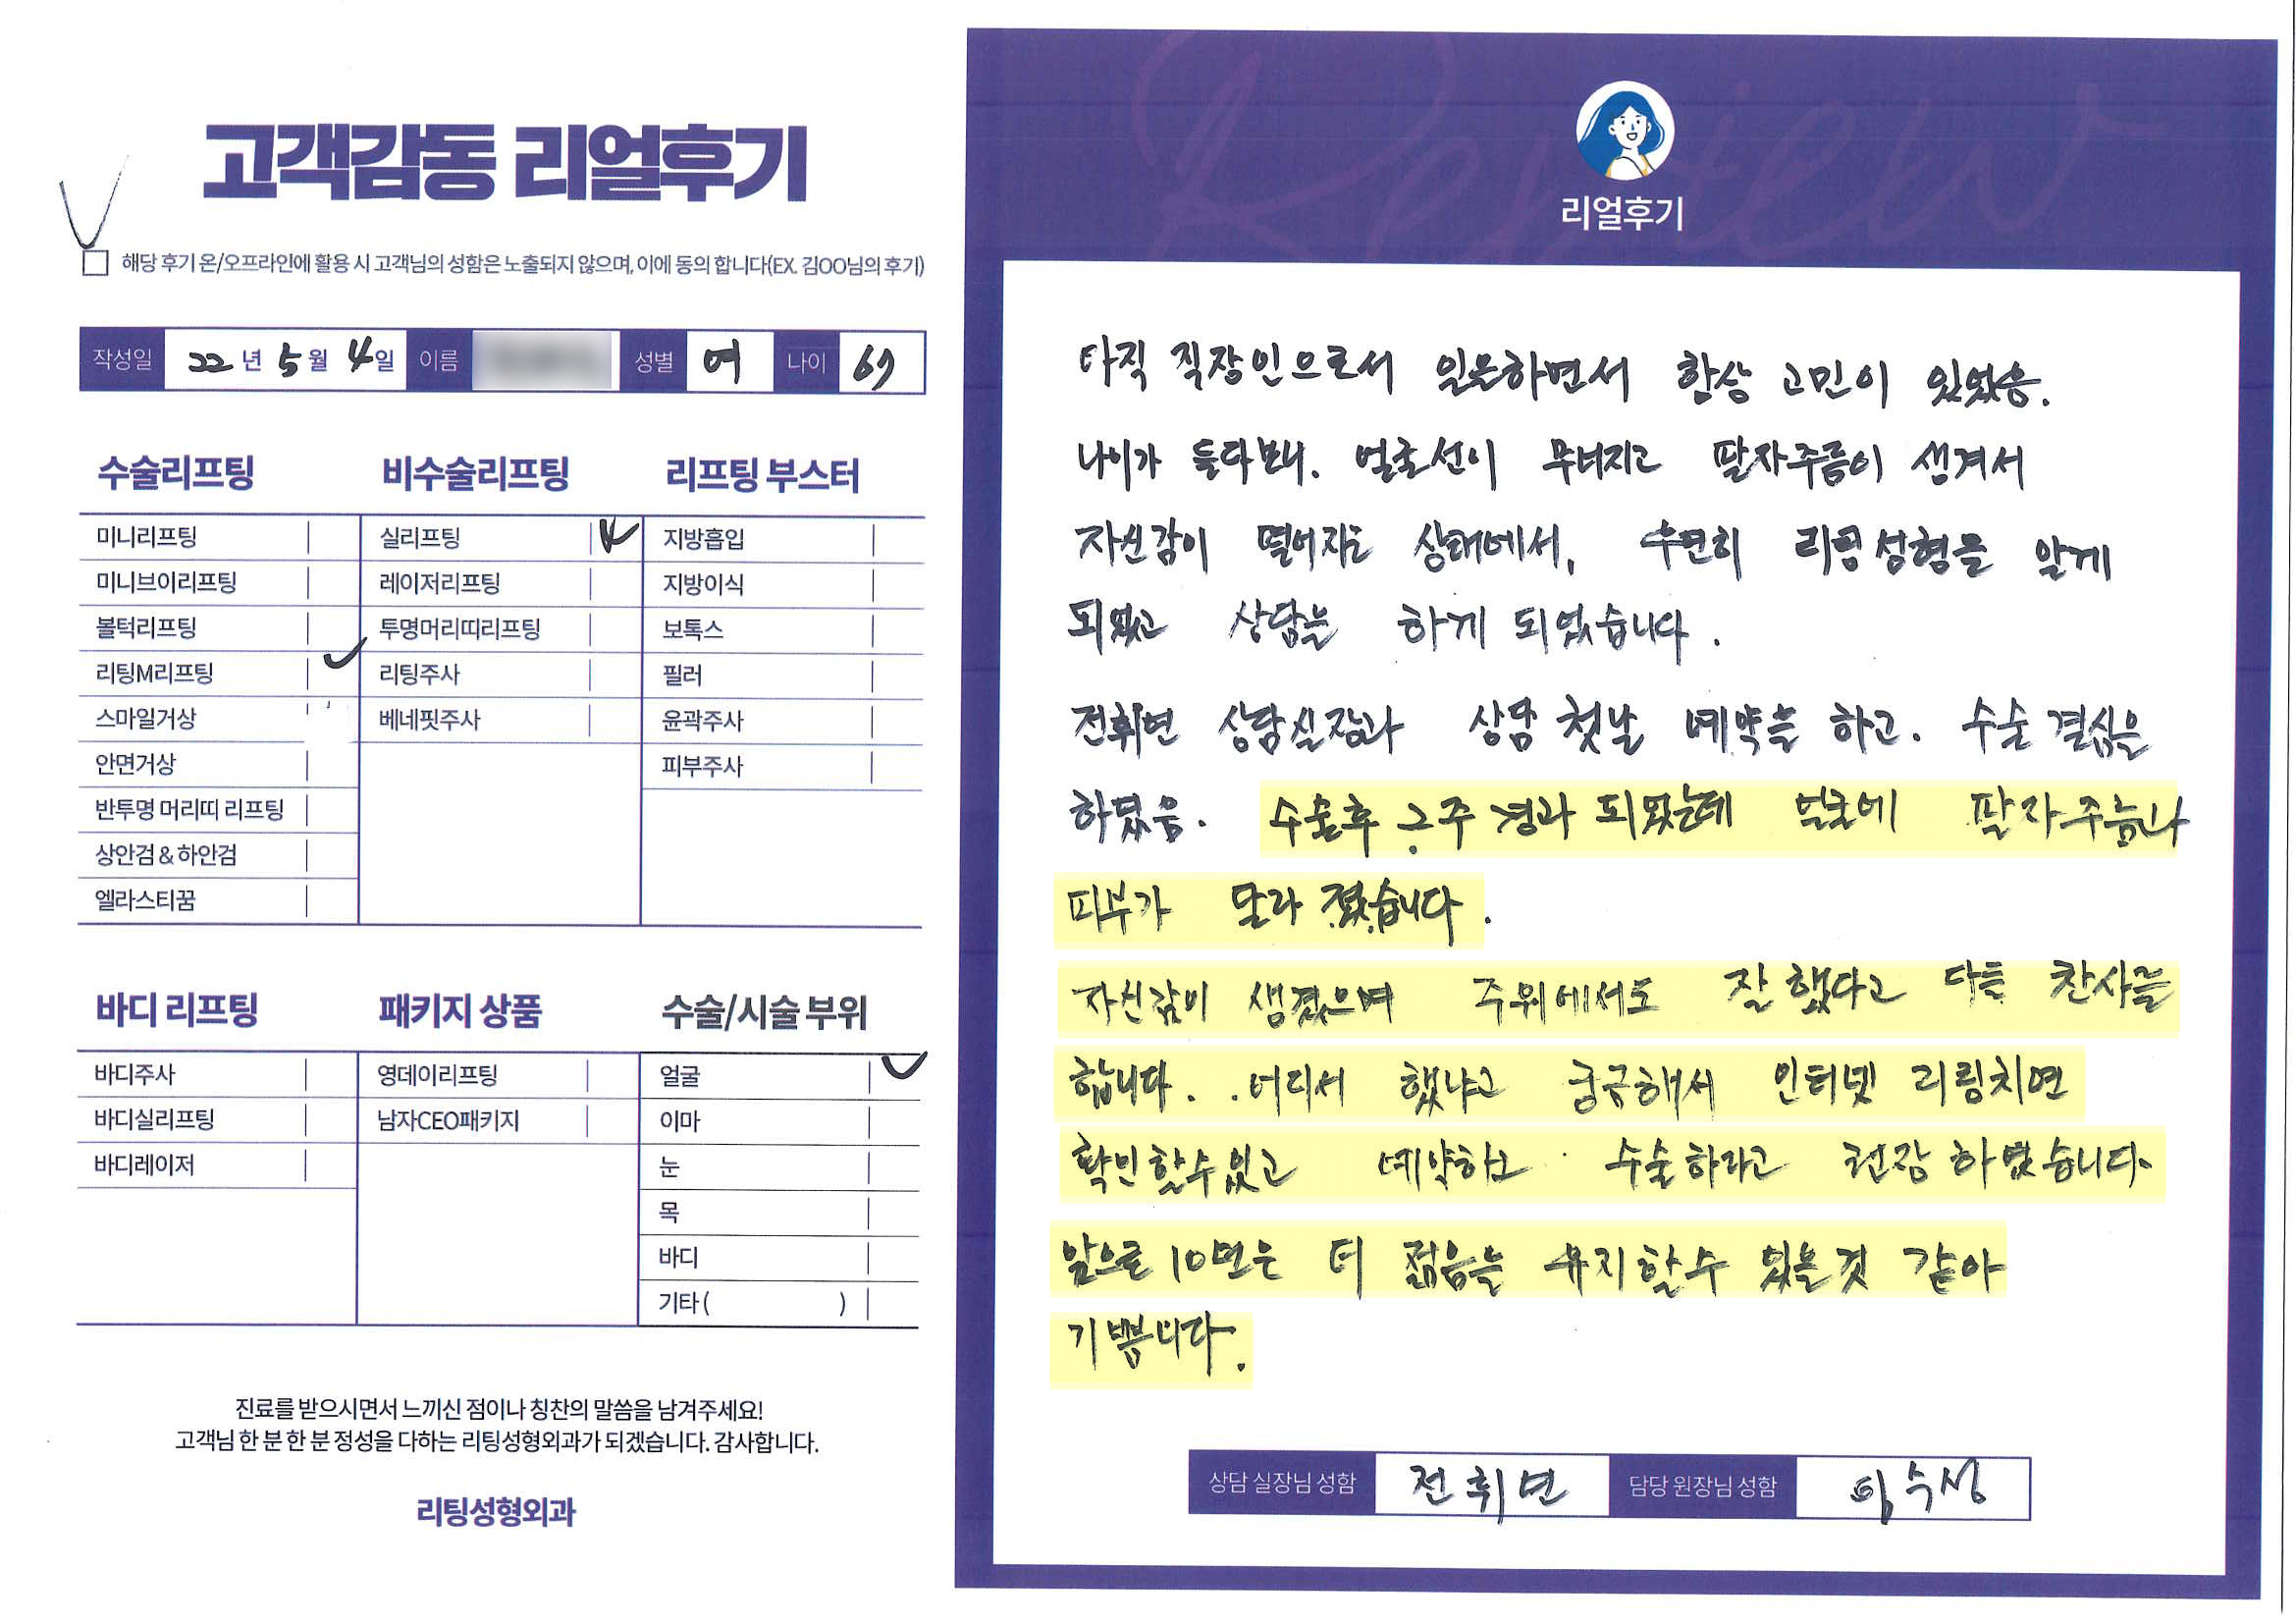 고객감동 리얼후기
해당 후기 온/오프라인에 활용 시 고객님의 성함은 노출되지 않으며, 이에 동의 합니다(EX. 김OO님의 후기)
작성일 22년 5월 4일 이름 성별 여 나이
수술리프팅
미니리프팅
미니브이리프팅
볼턱리프팅
리팅M리프팅
스마일거상
안면거상
반투명 머리띠 리프팅
상안검 & 하안검
엘라스티꿈
비수술리프팅
실리프팅
레이저리프팅
투명머리띠리프팅
리팅주사
베네핏주사
리프팅 부스터
지방흡입
지방이식
보톡스
필러
윤곽주사
피부주사
바디 리프팅
바디주사
바디실리프팅
바디레이저
패키지 상품
영데이리프팅
남자CEO패키지
수술/시술 부위
얼굴
이마
눈
목
바디
기타 ( )
진료를 받으시면서 느끼신 점이나 칭찬의 말씀을 남겨주세요!
고객님 한 분 한 분 정성을 다하는 리팅성형외과가 되겠습니다. 감사합니다.
리팅성형외과
Review
리얼후기
아직 직장인으로서 일은하면서 항상 고민이 있었음.
나이가 들다보니. 얼굴선이 무너지고 팔자주름이 생겨서
자신감이 떨어지는 상태에서, 우연히 리팅성형을 알게
되었고 상담을 하게 되었습니다.
전휘연 상담실장과 상담 첫날 예약을 하고. 수술 결심을
하였음. 수술후 주 경과 되었는데 얼굴에 팔자주름과
피부가 달라 졌습니다.
자신감이 생겼으며 주위에서도 잘 했다고 다들 찬사를
합니다. 어디서 했냐고 궁금해서 인터넷 리팅치면
확인할수있고 예약하고 수술하라고 권장 하였습니다.
앞으로 10년은 더 젊음을 유지할수 있을것 같아
기쁩니다.
상담 실장님 성함 전휘연 담당 원장님 성함